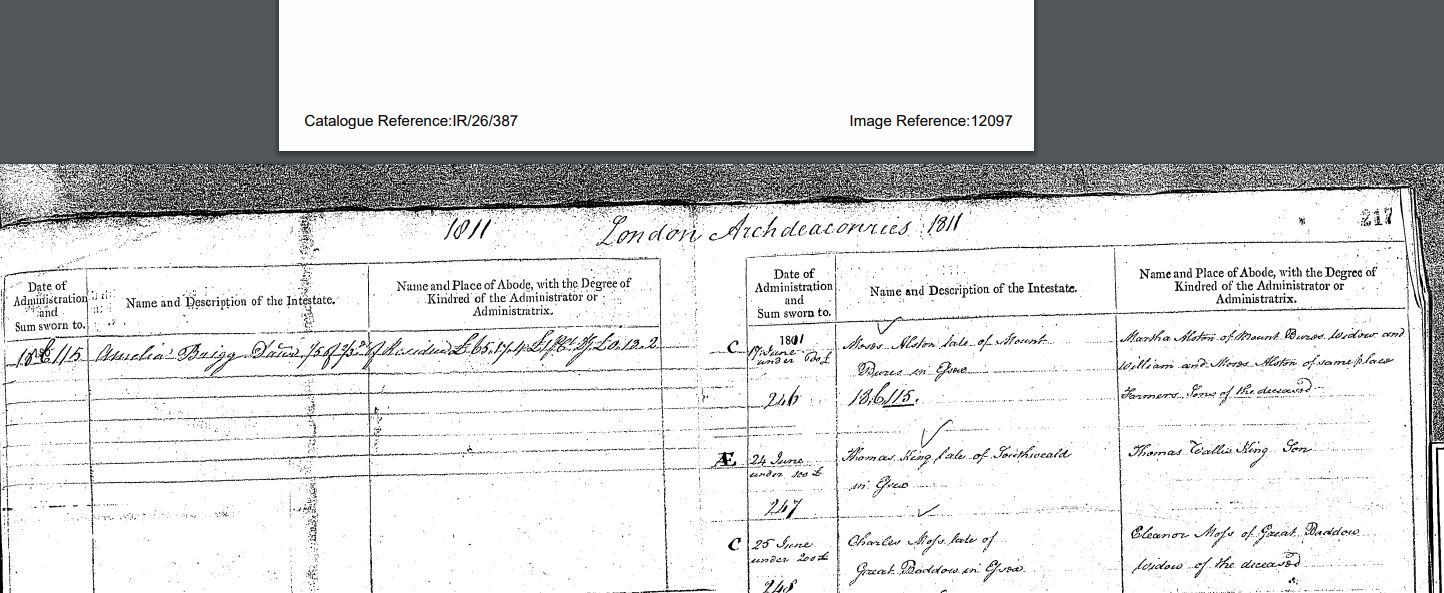 Catalogue Reference:IR/26/387
Image Reference:12097
1811
London Archdeaconries 1811
217
Date of
Administration
and
Sum sworn to.
Name and Description of the Intestate.
Name and Place of Abode, with the Degree of
Kindred of the Administrator or
Administratrix.
Amelia Brigg of Residue
Date of
Administration
and
Sum sworn to.
Name and Description of the Intestate.
Name and Place of Abode, with the Degree of
Kindred of the Administrator or
Administratrix.
C
1801
17 June
under 600£
246
Moses Alston late of Mount
Bures in Essex
115.
Martha Alston of Mount Bures Widow and
William and Moses Alston of same place
Farmers Sons of the deceased
Æ
24 June
under 100£
247
Thomas King late of Southweald
in Essex
Thomas Wallis King Son
C
25 June
under 200£
248
Charles Moss late of
Great Baddow in Essex
Eleanor Moss of Great Baddow
Widow of the deceased